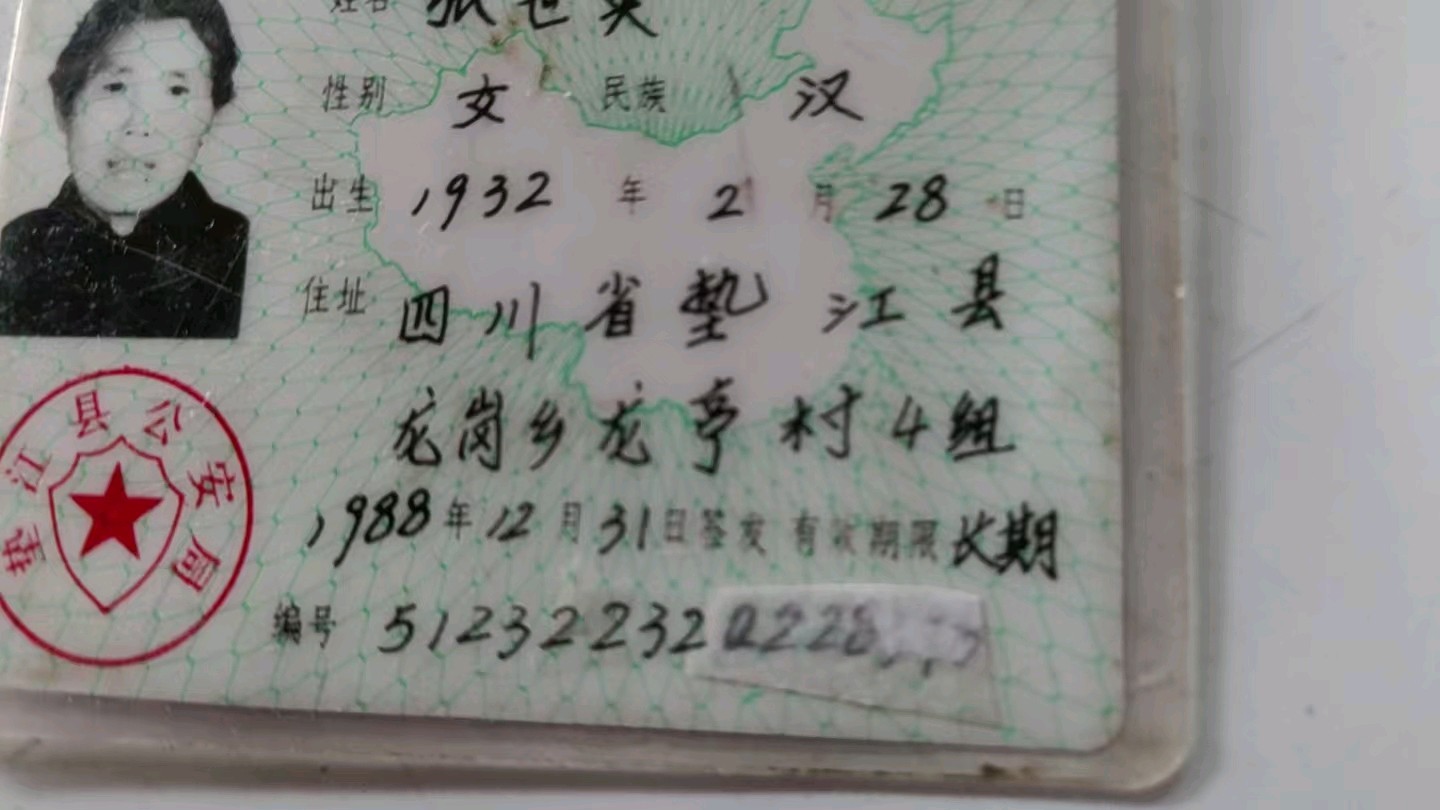 姓名 张世英
性别 女 民族 汉
出生 1932 年 2 月 28 日
住址 四川省垫江县
龙岗乡龙亭村4组
1988年12月31日签发 有效期限长期
编号 512322320228
垫江县公安局